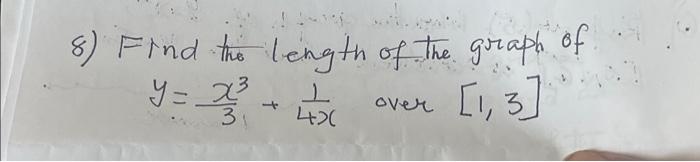 8) Find the length of the graph of
y = x³/3 + 1/4x over [1, 3]